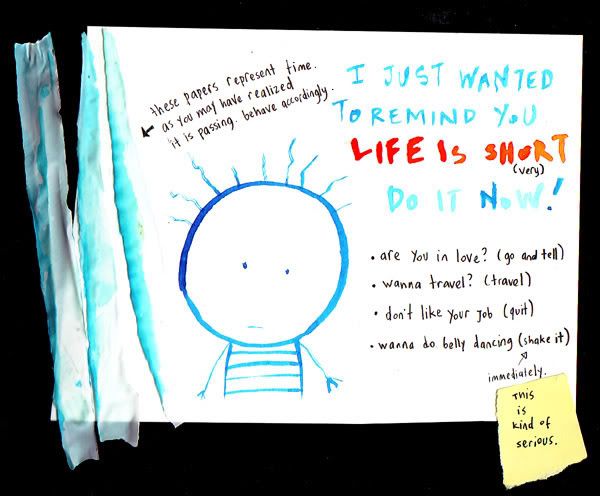 these papers represent time.
as you may have realized
it is passing. behave accordingly.
I JUST WANTED
TO REMIND YOU
LIFE IS SHORT
(very)
DO IT NOW!
• are you in love? (go and tell)
• wanna travel? (travel)
• don't like your job (quit)
• wanna do belly dancing (shake it)
immediately.
This
is
kind of
serious.